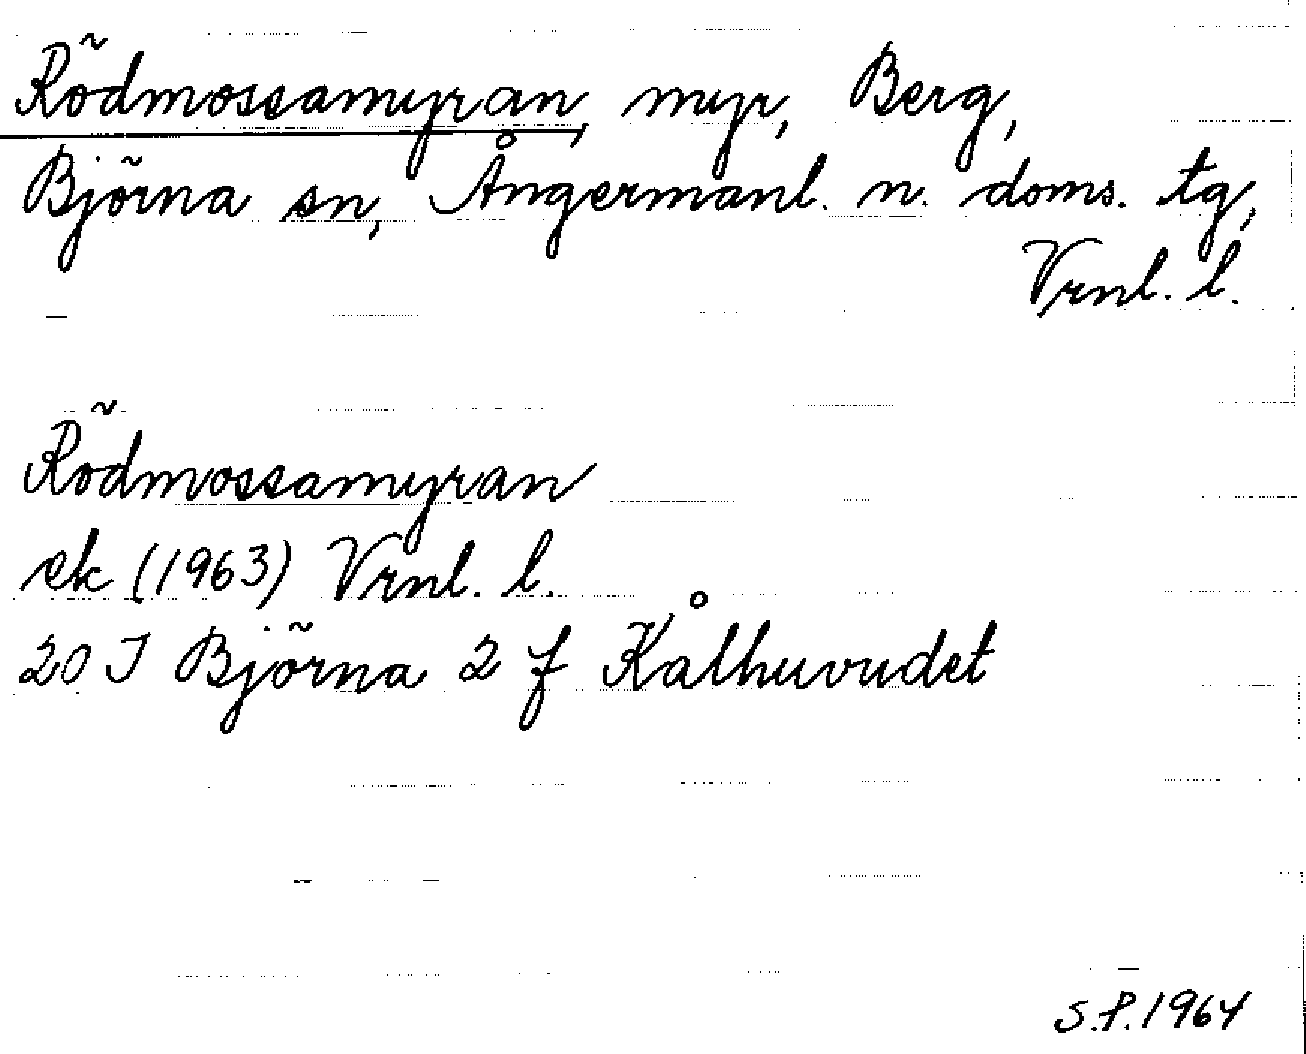 Rödmossamyran, myr, Berg,
Björna sn, Ångermanl. n. doms. tg,
Vrnl. l.
Rödmossamyran
ek (1963) Vrnl. l.
20 J Björna 2 f Kålhuvudet
S.P. 1964